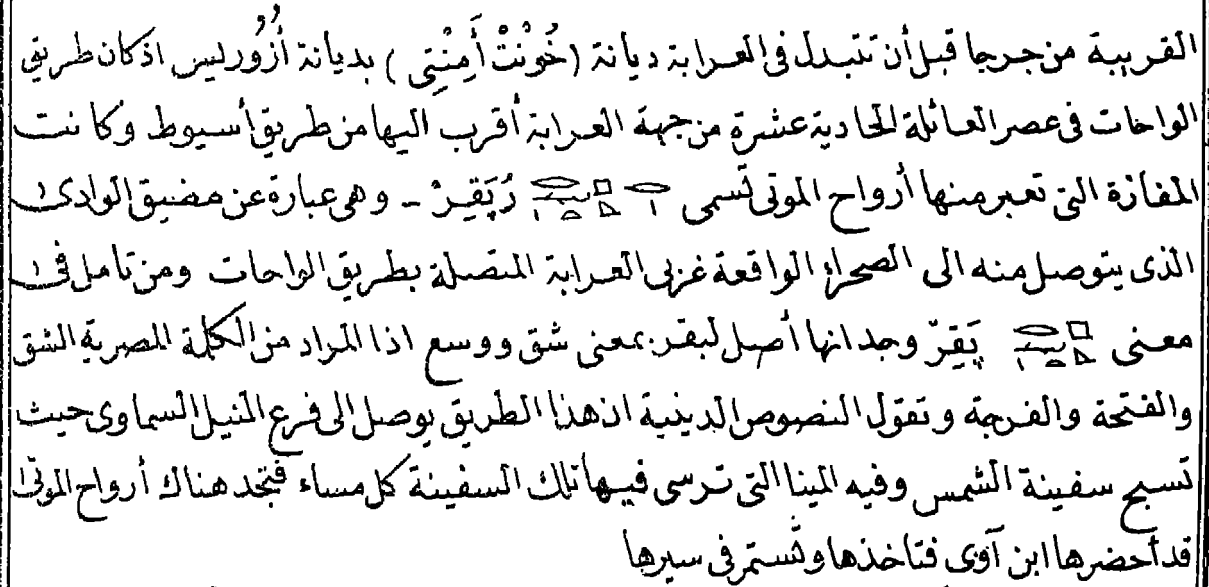 القريبة من جرجا قبل أن تتبدل فى العرابة ديانة (خُونْتْ أَمِنْتِى) بديانة أُزُورليس اذ كان طريق
الواحات فى عصر العائلة الحادية عشرة من جهة العرابة أقرب اليها من طريق أسيوط وكانت
المفازة التى تعبر منها أرواح الموتى تسمى رُيَقِرْ - وهى عبارة عن مضيق الوادى
الذى يتوصل منه الى الصحراء الواقعة غربى العرابة المتصلة بطريق الواحات ومن تامل فى
معنى يَقِرّ وجد انها أصل لبقر بمعنى شق ووسع اذا المراد من الكلمة المصرية الشق
والفتحة والفرجة وتقول النصوص الدينية ان هذا الطريق يوصل الى فرع النيل السماوى حيث
تسبح سفينة الشمس وفيه المينا التى ترسى فيها تلك السفينة كل مساء فتجد هناك أرواح الموتى
قد أحضرها ابن آوى فتاخذها وتستمر فى سيرها